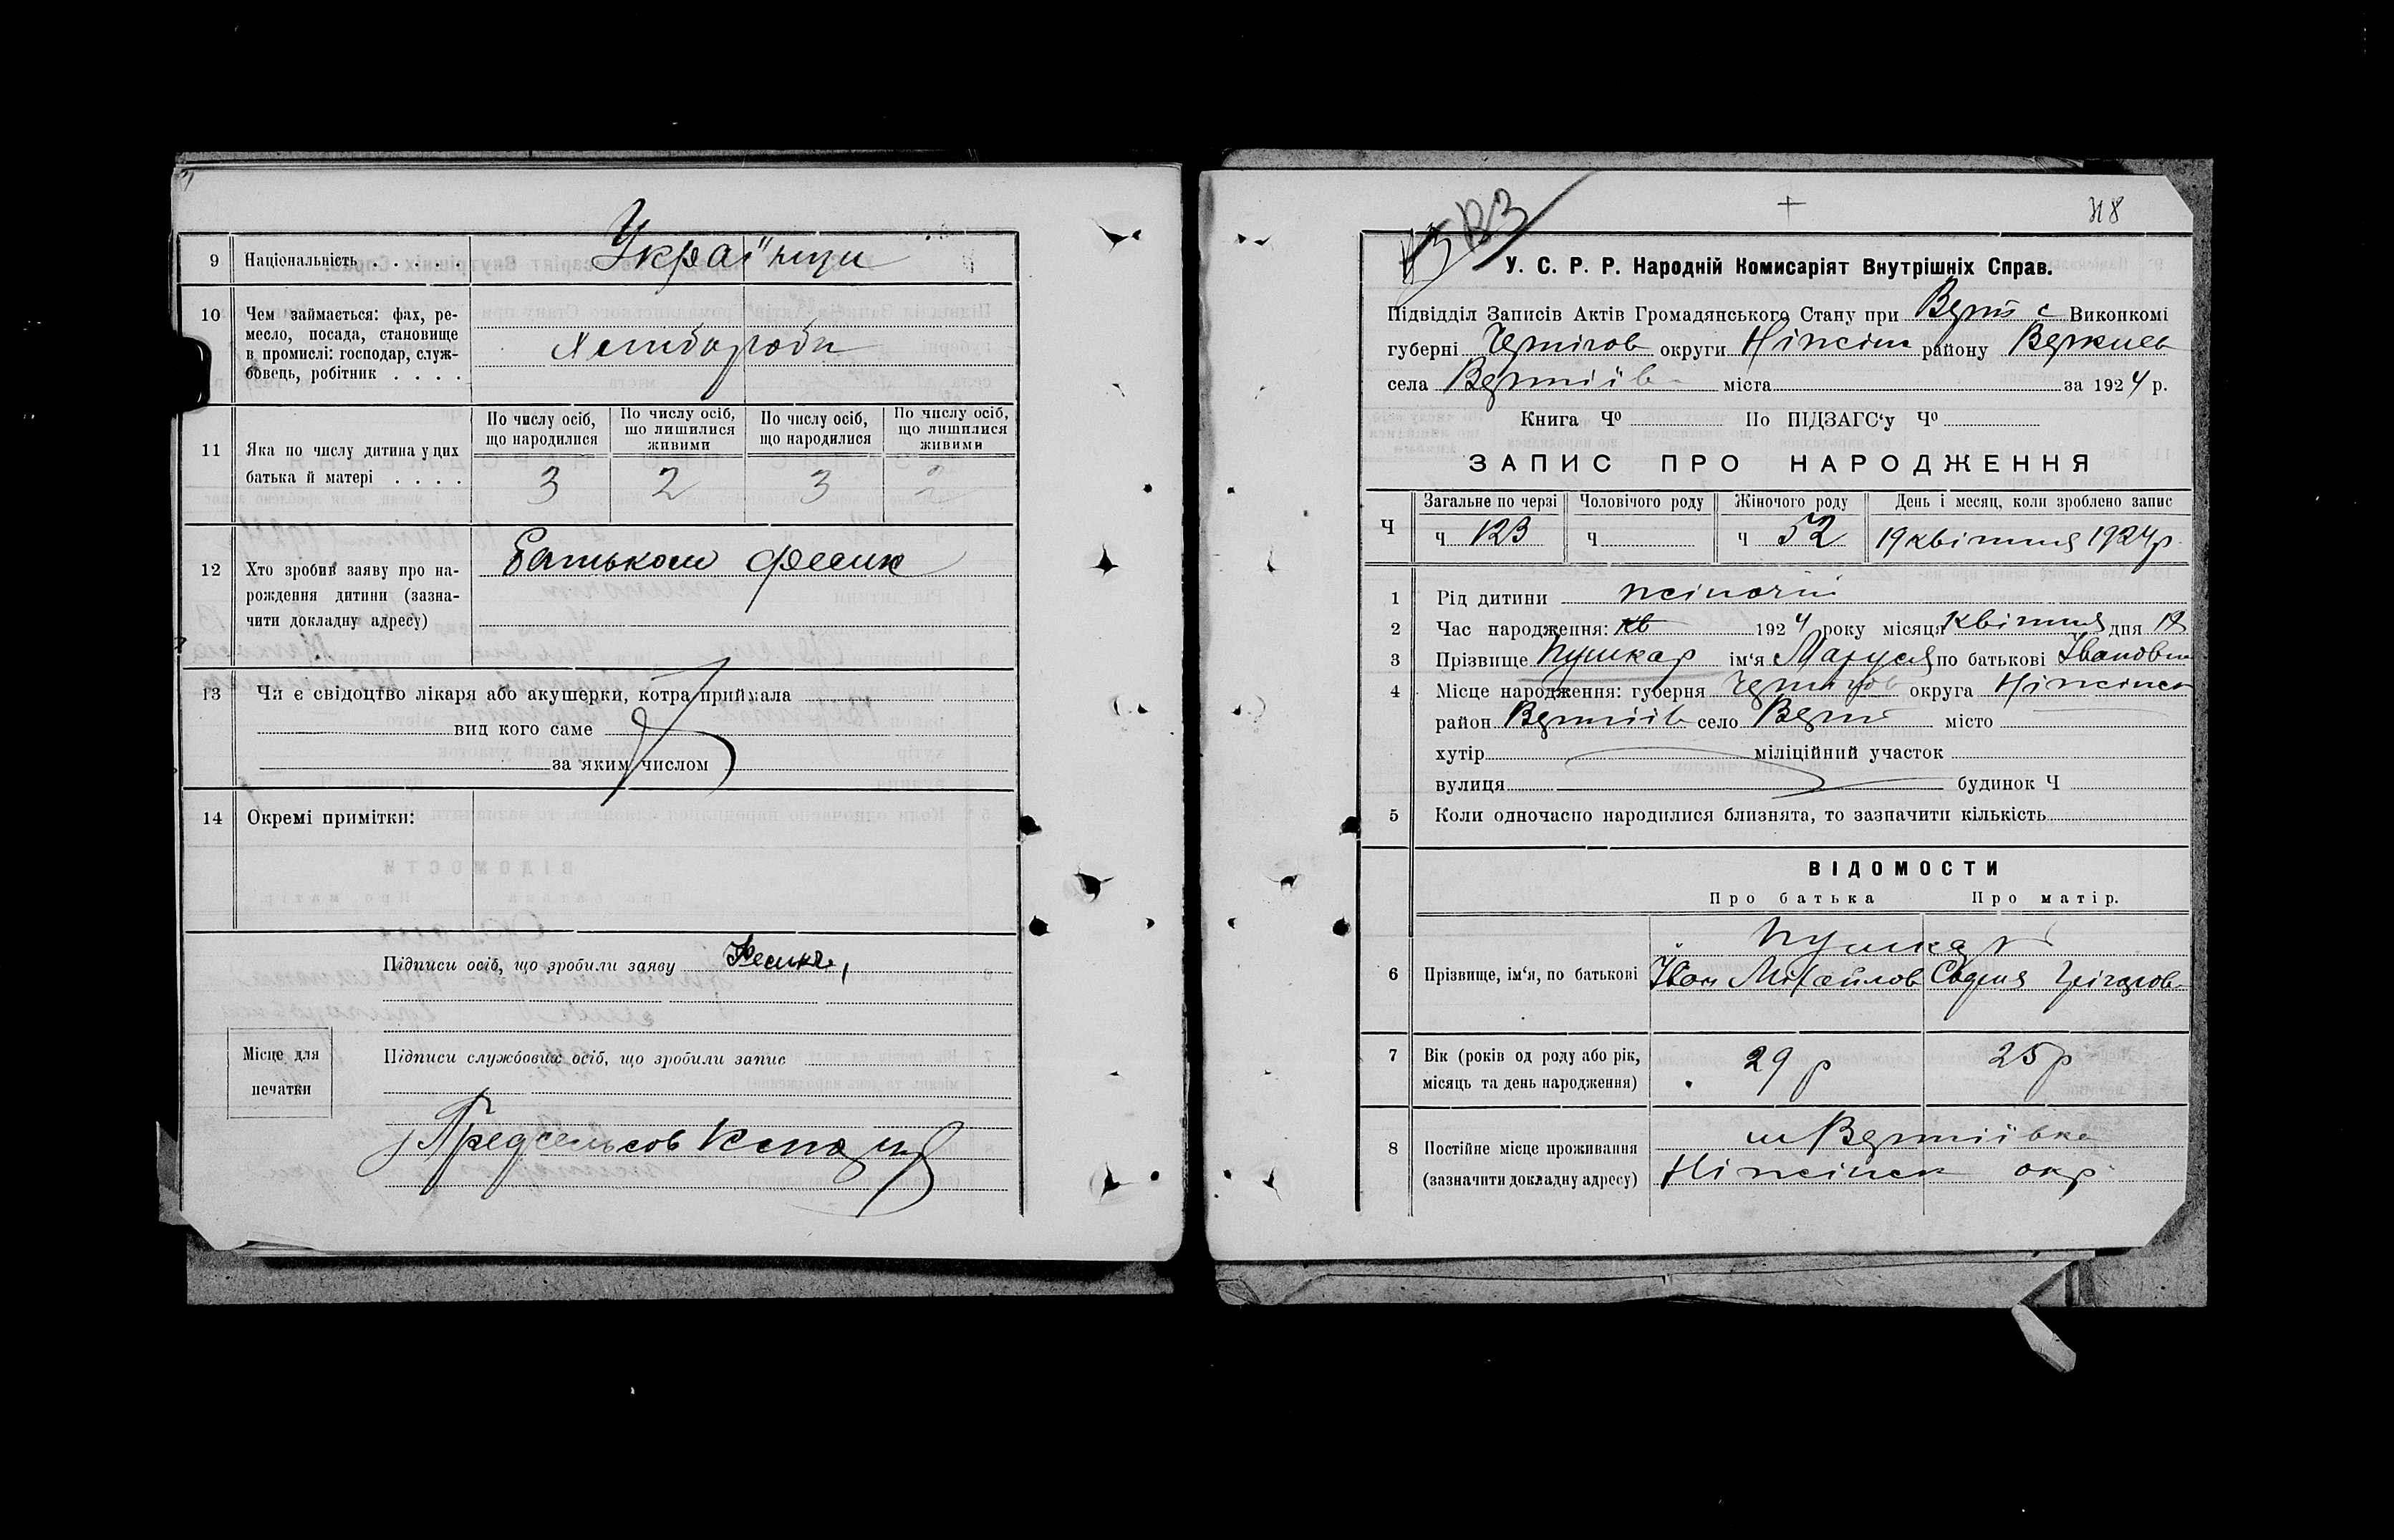 Українци
9 Національність . . . . .
10 Чем займається: фах, ре-
месло, посада, становище
в промислі: господар, служ-
бовець, робітник . . . .
Хлибороби
11 Яка по числу дитина у цих
батька й матері . . . .
По числу осіб, що народилися
По числу осіб, що лишилися живими
По числу осіб, що народилися
По числу осіб, що лишилися живими
3 2 3 2
12 Хто зробив заяву про на-
рождення дитини (зазна-
чити докладну адресу)
Батьком Фесик
13 Чи є свідоцтво лікаря або акушерки, котра приймала
вид кого саме
за яким числом
14 Окремі примітки:
Підписи осіб, що зробили заяву Фесикъ,
Місце для
печатки
Підписи службових осіб, що зробили запис
Предсельсов
123
118
У. С. Р. Р. Народній Комисаріят Внутрішніх Справ.
Підвідділ Записів Актів Громадянського Стану при Верт с Виконкомі
губерні Чернігов округи Ніжин району Веркиев
села Вертіїв міста за 1924 р.
Книга Ч⁰ По ПІДЗАГС‘у Ч⁰
ЗАПИС ПРО НАРОДЖЕННЯ
Ч Загальне по черзі Чоловічого роду Жіночого роду День і месяц, коли зроблено запис
ч 123 ч ч 52 19 квітня 1924 р.
1 Рід дитини жіночій
2 Час народження: кв 1924 року місяця квітня дня 18
3 Прізвище Пушкар ім‘я Маруся по батькові Івановн
4 Місце народження: губерня Чернігов округа Ніжінск
район Вертіїв село Верт місто
хутір міліційний участок
вулиця будинок Ч
5 Коли одночасно народилися близнята, то зазначити кількість
ВІДОМОСТИ
Про батька Про матір.
Пушкар
6 Прізвище, ім‘я, по батькові Іван Міхайлов Євдокія Григоров
7 Вік (років од роду або рік,
місяць та день народження)
29 р 25 р
8 Постійне місце проживання
(зазначити докладну адресу)
м Вертіївка
Ніжінск окр